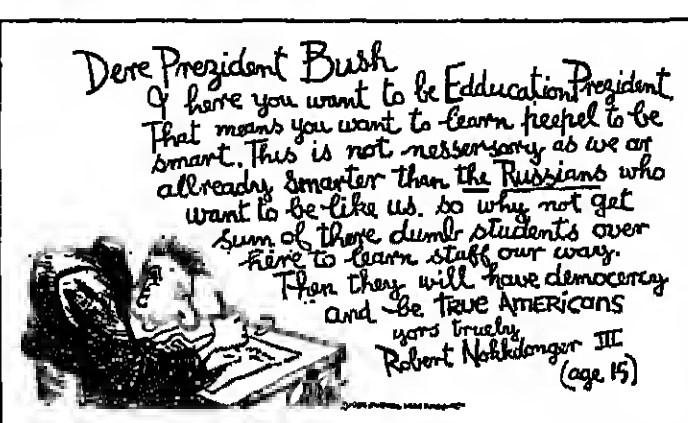 Dere Prezident Bush
I here you want to be Edducation Prezident.
That means you want to learn peepel to be
smart. This is not nessersary as we ar
allready smarter than the Russians who
want to be like us. so why not get
sum of there dumb students over
here to learn stuff our way.
Then they will have democercy
and be TRUE AMERICANS
yors truely
Robert Nohkdonger III
(age 15)